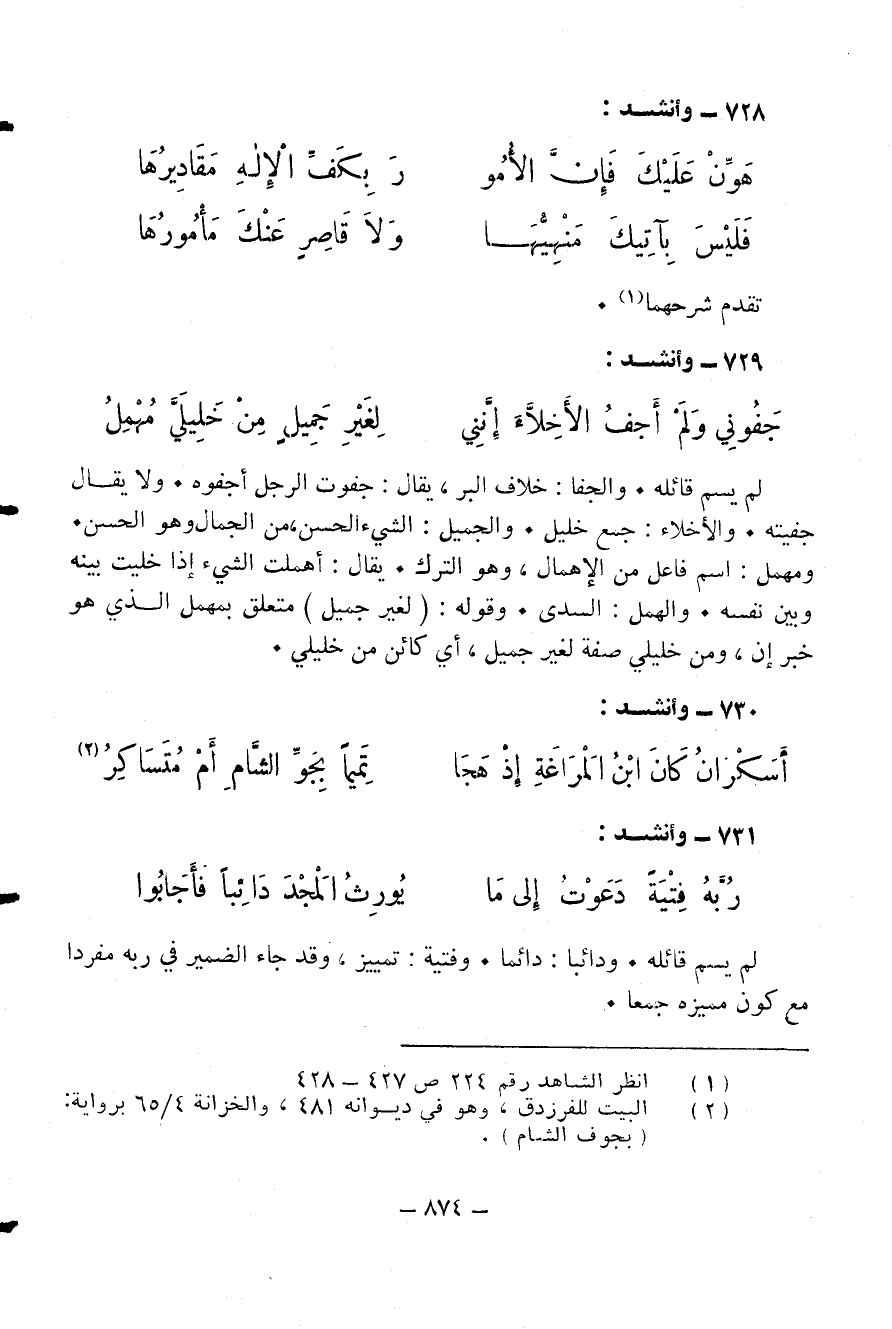 ٧٢٨ ــ وأنشــد :
هَوِّنْ عَلَيْكَ فَإِنَّ الأُمُو رَ بِكَفِّ الْإِلٰهِ مَقَادِيرُهَا
فَلَيْسَ بِآتِيكَ مَنْهِيُّهَــا وَلاَ قَاصِرٍ عَنْكَ مَأْمُورُهَا
تقدم شرحهما(١) ٠
٧٢٩ ــ وأنشــد :
جَفُونِي وَلَمْ أَجفُ الأَخِلاَّءَ إِنَّنِي لِغَيْرِ جَمِيلٍ مِنْ خَلِيلَيَّ مُهْمِلُ
لم يسم قائله ٠ والجفا : خلاف البر ، يقال : جفوت الرجل أجفوه ٠ ولا يقــال
جفيته ٠ والأخلاء : جمع خليل ٠ والجميل : الشيءالحسن،من الجمال وهو الحسن٠
ومهمل : اسم فاعل من الإهمال ، وهو الترك ٠ يقال : أهملت الشيء إذا خليت بينه
وبين نفسه ٠ والهمل : السدى ٠ وقوله : ( لغير جميل ) متعلق بمهمل الــذي هو
خبر إن ، ومن خليلي صفة لغير جميل ، أي كائن من خليلي ٠
٧٣٠ ــ وأنشــد :
أَسَكْرَانُ كَانَ ابْنُ الْمَرَاغَةِ إِذْ هَجَا تَمِيماً بِجَوِّ الشَّامِ أَمْ مُتَسَاكِرُ(٢)
٧٣١ ــ وأنشــد :
رُبَّهُ فِتْيَةً دَعَوْتُ إِلى مَا يُورِثُ الْمَجْدَ دَائِباً فَأَجَابُوا
لم يسم قائله ٠ ودائبا : دائما ٠ وفتية : تمييز ، وقد جاء الضمير في ربه مفردا
مع كون مميزه جمعا ٠
(١) انظر الشاهد رقم ٢٢٤ ص ٤٢٧ – ٤٢٨
(٢) البيت للفرزدق ، وهو في ديــوانه ٤٨١ ، والخزانة ٦٥/٤ برواية:
( بجوف الشام ) .
– ٨٧٤ –